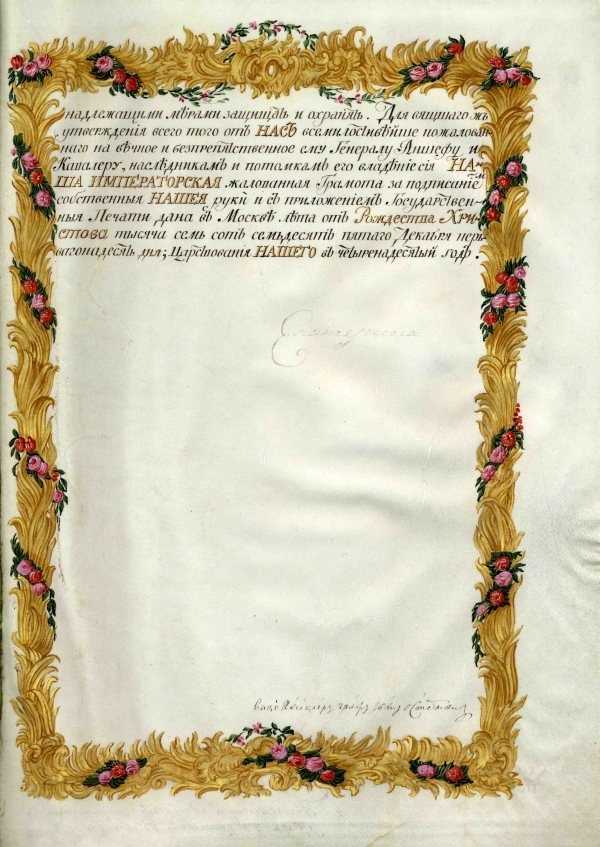 надлежащими мѣрами защищать и охранять. Для вящщаго жъ
утвержденія всего того отъ НАСЪ всемилостивѣйше пожалован
наго на вѣчное и безпрепятственное ему Генералу Аншефу и
Кавалеру, наслѣдникамъ и потомкамъ его владѣніе сія НА-
ША ИМПЕРАТОРСКАЯ жалованная Грамота за подписаніемъ
собственныя НАШЕЯ руки и съ приложеніемъ Государствен-
ныя Печати дана въ Москвѣ лѣта отъ Рождества Хри-
стова тысяча семь сотъ семьдесятъ пятаго Декабря пер-
ваго надесять дня; Царствованія НАШЕГО въ четыренадесятый годъ.
Екатерина
Вице Канцлеръ графъ Иванъ Остерманъ